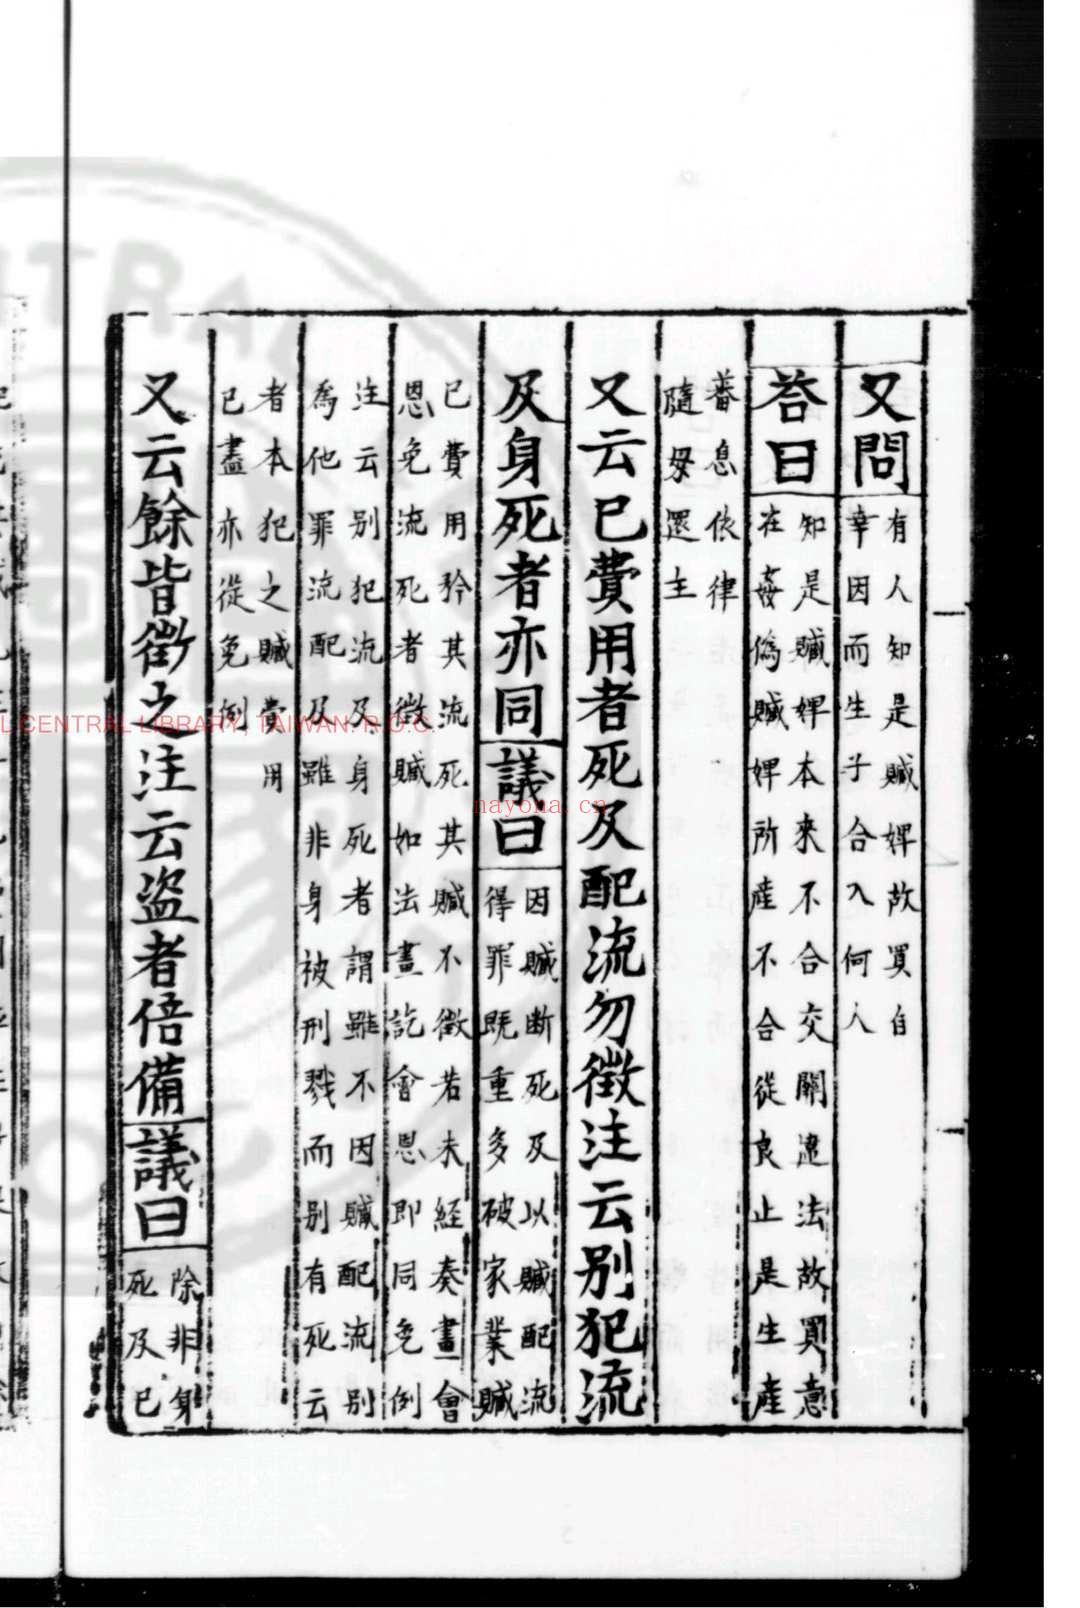 又問
有人知是贓婢故買自
幸因而生子合入何人
荅曰
知是贓婢本來不合交關違法故買意
在姦偽贓婢所產不合從良止是生產
蕃息依律
隨母還主
又云已費用者死及配流勿徵注云別犯流
及身死者亦同議曰
因贓斷死及以贓配流
得罪既重多被家業贓
已費用矜其流死其贓不徵若未經奏畫會
恩免流死者徵贓如法畫訖會恩即同免例
注云別犯流及身死者謂雖不因贓配流別
爲他罪流配及雖非身被刑戮而別有死云
者本犯之贓費用
已盡亦從免例
又云餘皆徵之注云盜者倍備議曰
除非身
死及已
L CENTRAL LIBRARY, TAIWAN. R.O.C.
nayona.cn